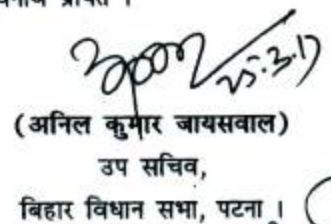 25.3.17
(अनिल कुमार जायसवाल)
उप सचिव,
बिहार विधान सभा, पटना।